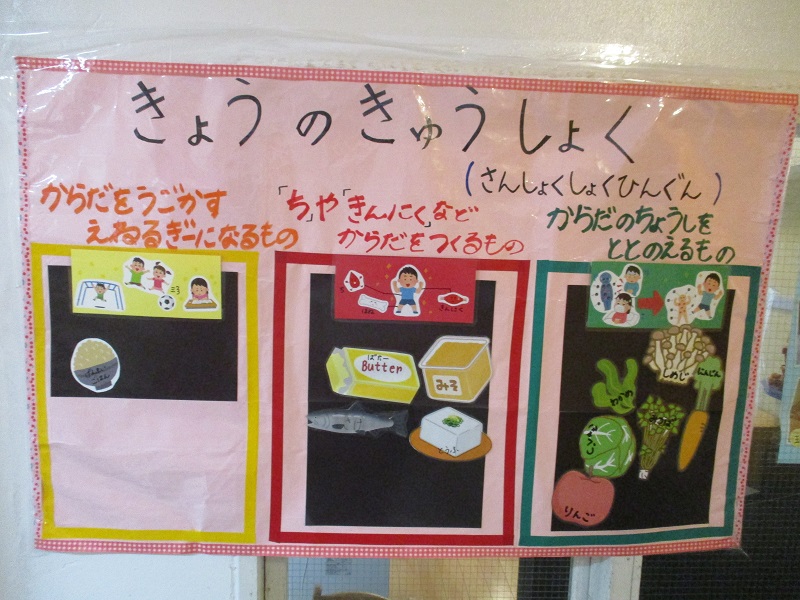 きょうのきゅうしょく
(さんしょくしょくひんぐん)
からだをうごかす
えねるぎーになるもの
「ち」や「きんにく」など
からだをつくるもの
からだのちょうしを
ととのえるもの
ほね
きんにく
ごはん
ばたー
Butter
みそ
とうふ
しめじ
にんじん
わかめ
りんご